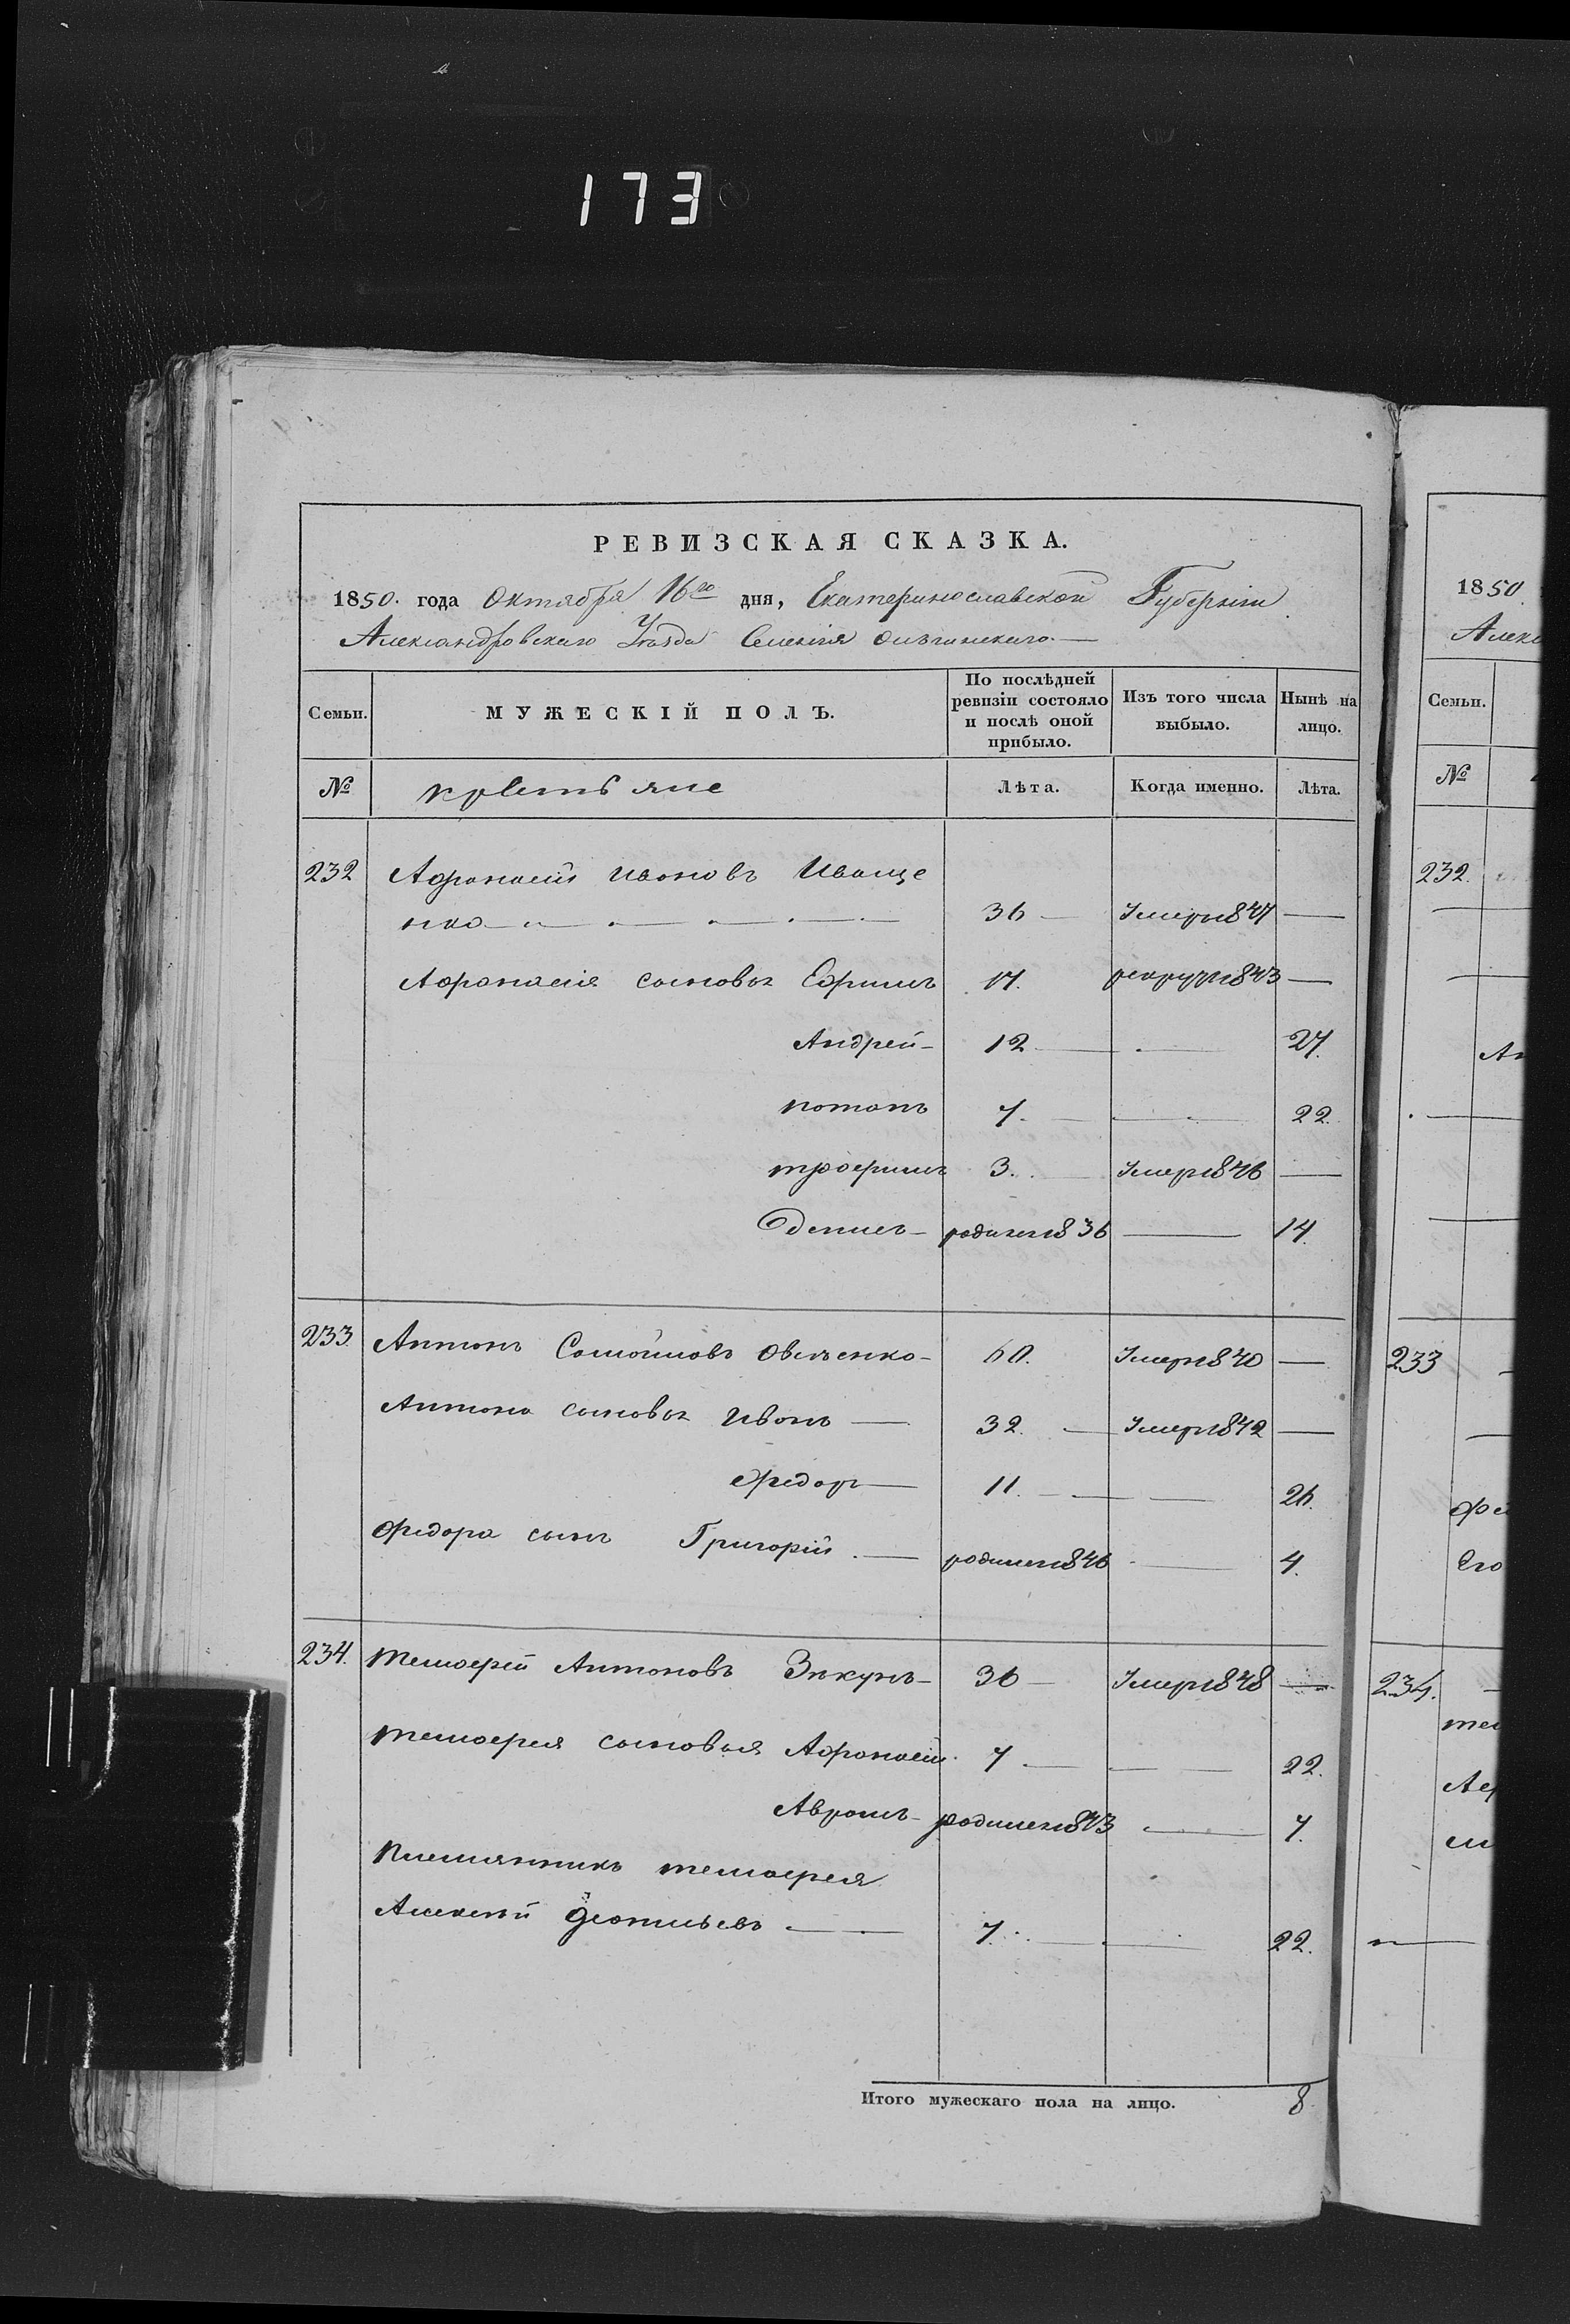 173
РЕВИЗСКАЯ СКАЗКА.
1850. года Октября 16го дня, Екатеринославской Губерніи
Александровскаго Уѣзда Селенія
Семьи.
МУЖЕСКІЙ ПОЛЪ.
По послѣдней ревизіи состояло и послѣ оной прибыло.
Изъ того числа выбыло.
Нынѣ на лицо.
№ крестьяне Лѣта. Когда именно. Лѣта.
232 Афонасій Ивановъ Иваще
нко 36 Умеръ 1847 —
Афонасія сыновья Ефимъ 17. рекрут 1843 —
Андрей 12 — 27.
Потапъ 7. — 22.
трофимъ 3. Умер 1846 —
Денисъ родился 1836 — 14.
233 Антонъ Самойловъ Овсѣенко 60. Умер 1840 —
Антона сыновья Иванъ — 32. Умер 1842 —
Федоръ — 11. — 26.
Федора сынъ Григорій — родился 1846 — 4.
234. Темофей Антоновъ 36 Умер 1848 —
Темофея сыновья Афонасій 7 — 22.
Аврамъ родился 1843 — 7.
Племянникъ темофея
Алексѣй — 7. — 22.
Итого мужескаго пола на лицо. 8
1850
Алекс
Семьи.
№
232.
Ан
233
Фе
Его
234.
тем
Аф